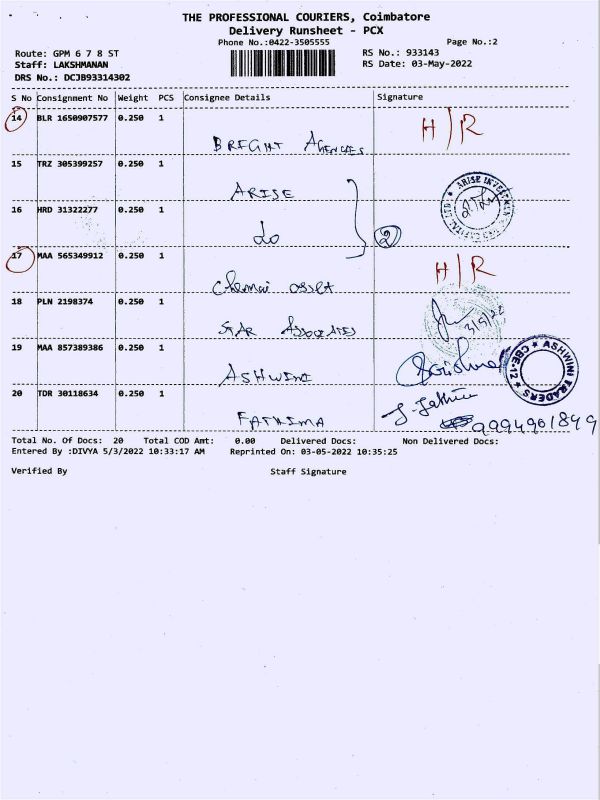 THE PROFESSIONAL COURIERS, Coimbatore
Delivery Runsheet - PCX
Phone No.:0422-3505555
Page No.:2
Route: GPM 6 7 8 ST
RS No.: 933143
Staff: LAKSHMANAN
RS Date: 03-May-2022
DRS No.: DCJB93314302
S No Consignment No Weight PCS Consignee Details Signature
14 BLR 1650907577 0.250 1 H/R
BRIGHT AGENCIES
15 TRZ 305399257 0.250 1
ARISE
16 HRD 31322277 0.250 1
do
2
17 MAA 565349912 0.250 1 H/R
Chennai asset
18 PLN 2198374 0.250 1
STAR ASSOCIATES 3/5/22
19 MAA 857389386 0.250 1
ASHWINI
ASHWINI TRADERS ★ CBE-12 ★
20 TDR 30118634 0.250 1
FATHIMA J. Fathima
9994901849
Total No. Of Docs: 20 Total COD Amt: 0.00 Delivered Docs: Non Delivered Docs:
Entered By :DIVYA 5/3/2022 10:33:17 AM Reprinted On: 03-05-2022 10:35:25
Verified By Staff Signature